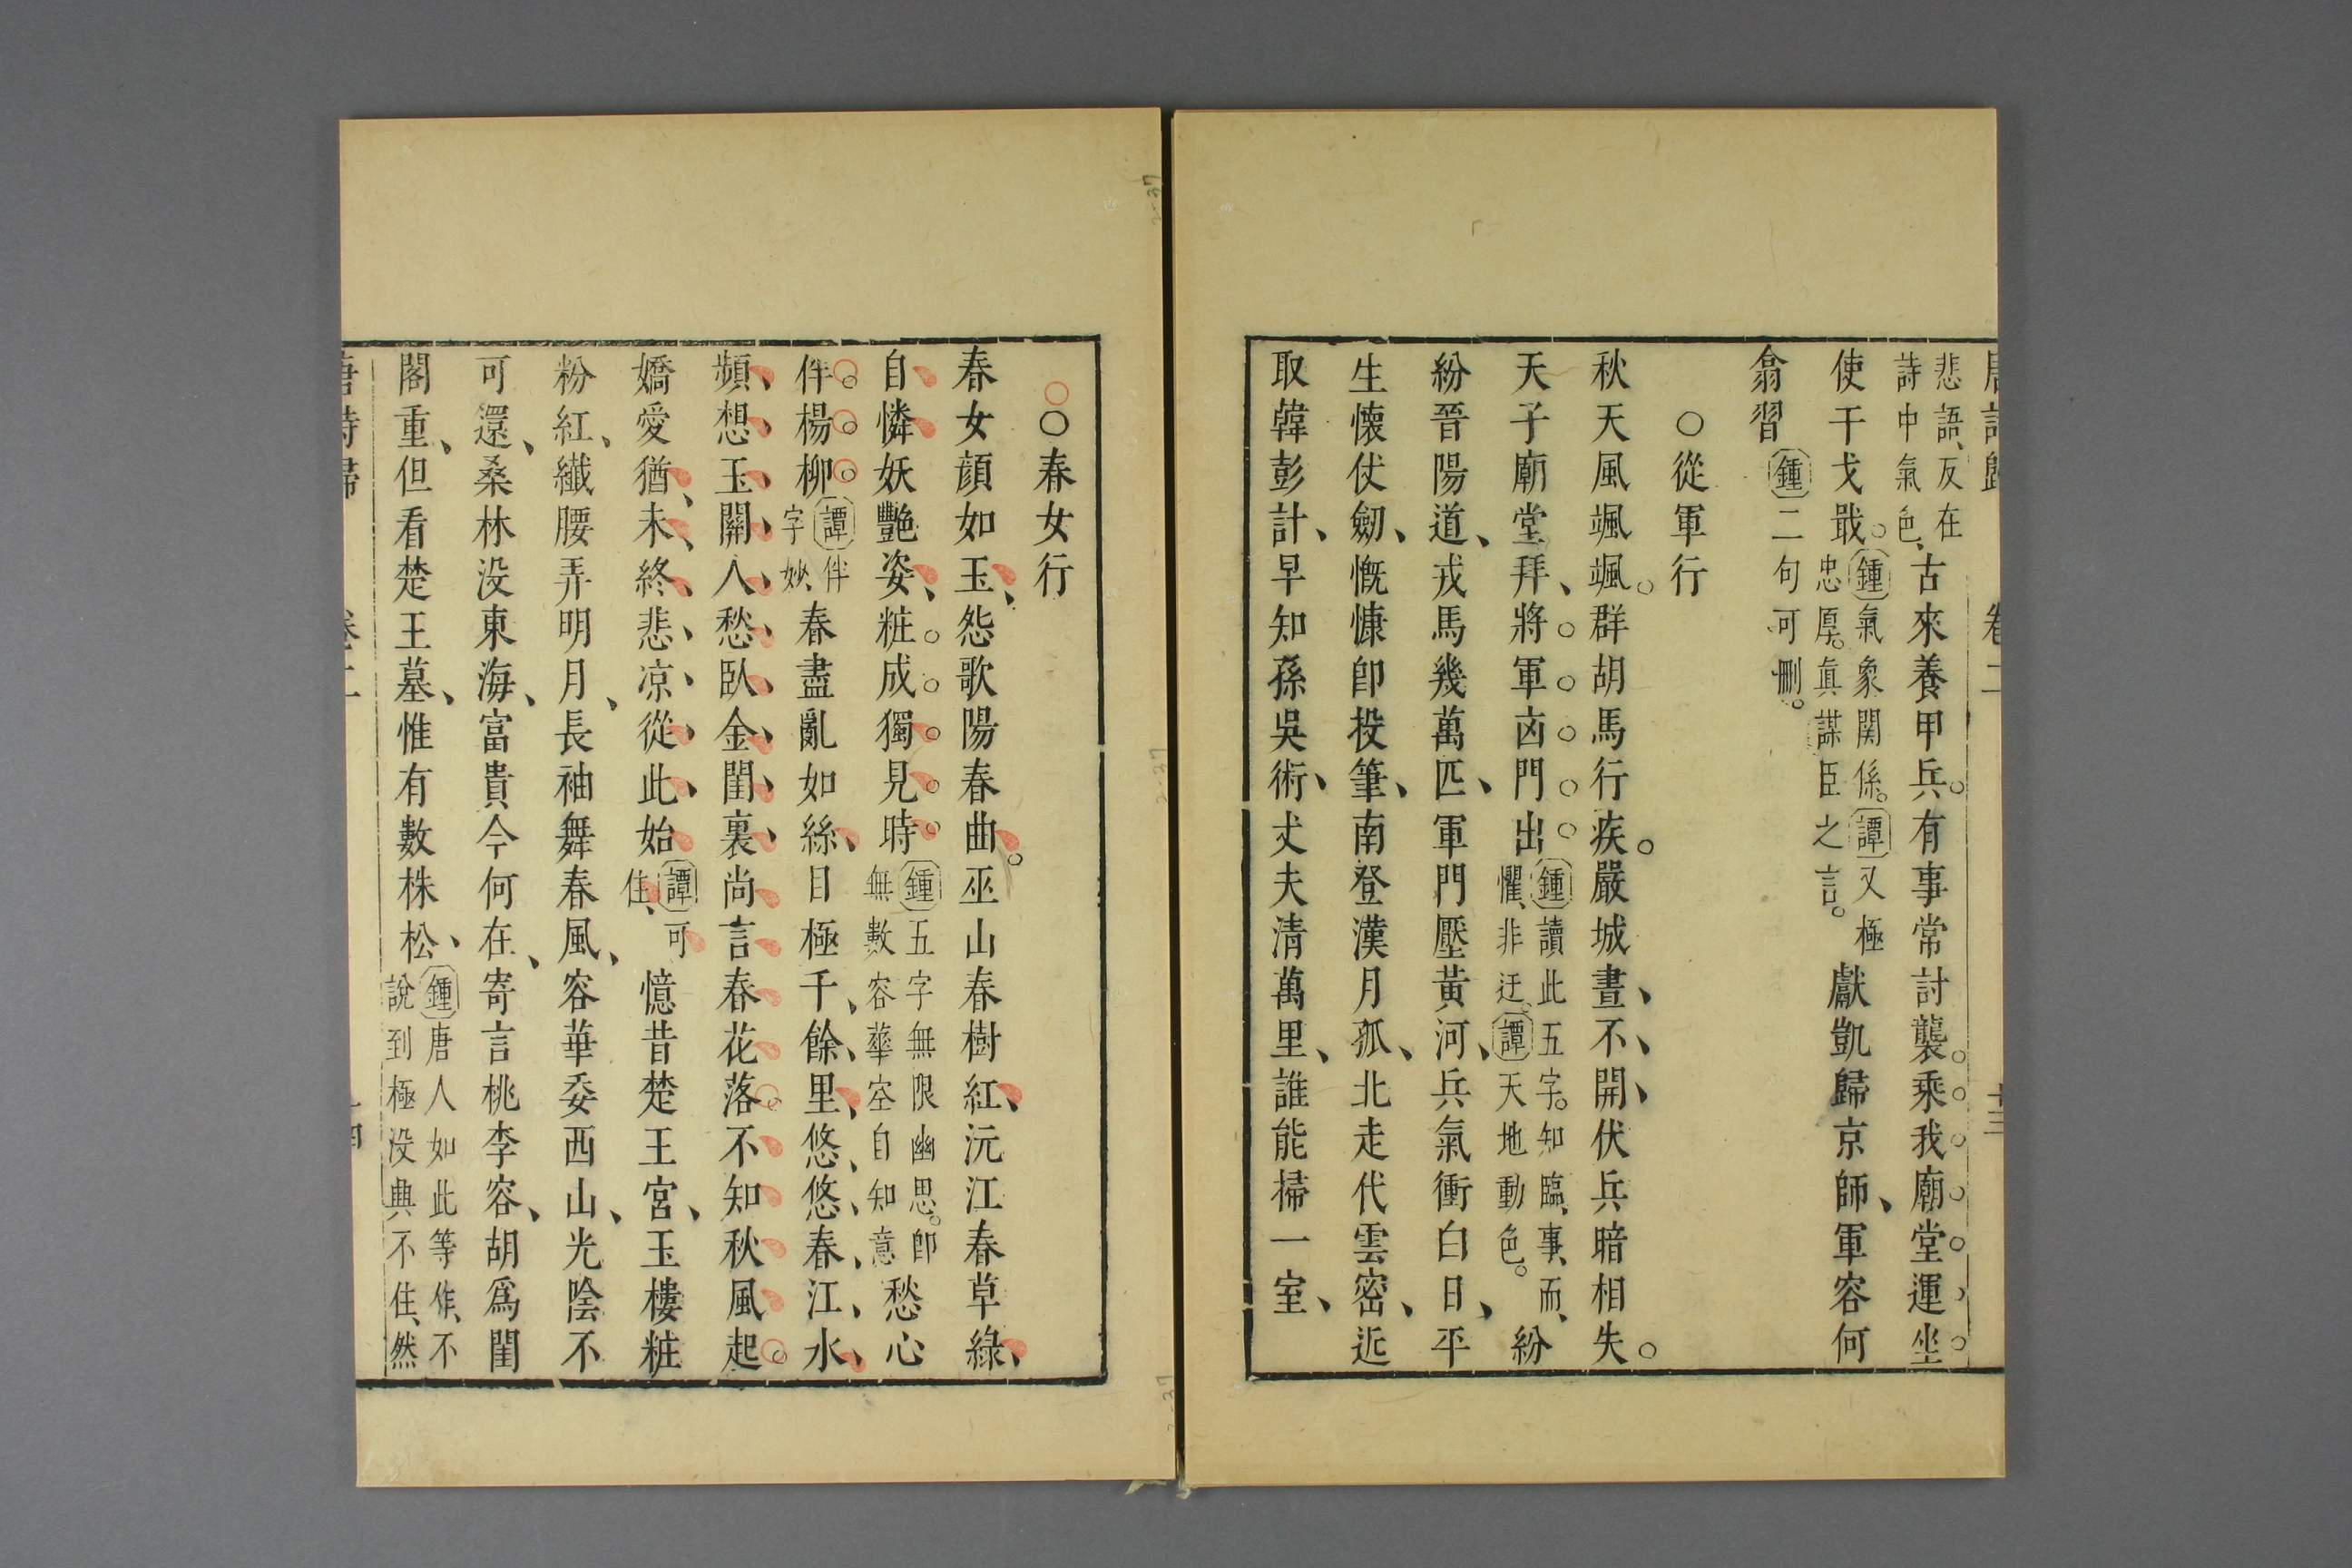 唐詩歸 卷二 十三
悲語、反在
詩中氣色、
古來養甲兵。有事常討襲。乘我廟堂運坐
使干戈戢。
鍾氣象関係。譚又極
忠厚。眞謀臣之言。
獻凱歸京師、軍容何
翕習
鍾二句可刪。
○從軍行
秋天風颯颯。群胡馬行疾。嚴城晝、不、開、伏兵暗相失。
天子廟堂拜、將軍凶門出
鍾讀此五字。知臨、事、而、
懼、非迂。譚天地動色。
紛
紛晉陽道、戎馬幾萬匹、軍門壓黃河、兵氣衝白日、平
生懷仗劒、慨慷即投筆、南登漢月孤、北走代雲密、近
取韓彭計、早知孫吳術、丈夫清萬里、誰能掃一室、
○春女行
春女顏如玉、怨歌陽春曲。巫山春樹紅、沅江春草綠、
自憐妖艷姿、粧成獨見時
鍾五字無限幽思。即
無數容華空自知意
愁心
伴楊柳
譚伴
字妙
春盡亂如絲、目極千、餘、里、悠、悠、春、江、水、
頻、想、玉、關、人、愁、臥、金、閨、裏、尚言春花落。不知秋風起。
嬌愛猶、未、終、悲、凉、從、此、始
譚可
住、
憶昔楚王宮、玉樓粧
粉紅、纖腰弄明月、長袖舞春風、容華委西山、光陰不
可還、桑林没東海、富貴今何在、寄言桃李容、胡爲閨
閣重、但看楚王墓、惟有數株松、
鍾唐人如此等作、不
說到極没典不住、然
唐詩歸 卷二 十四